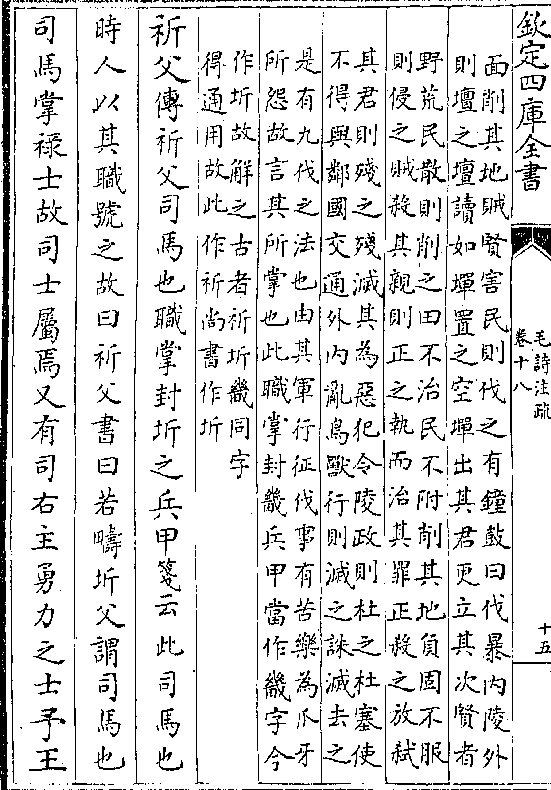 欽定四庫全書
毛詩注疏
卷十八
十五
面削其地賊賢害民則伐之有鐘鼓曰伐暴內陵外
則壇之壇讀如墠置之空墠出其君更立其次賢者
野荒民散則削之田不治民不附削其地負固不服
則侵之賊殺其親則正之執而治其罪正殺之放弑
其君則殘之殘滅其為惡犯令陵政則杜之杜塞使
不得與鄰國交通外內亂鳥獸行則滅之誅滅去之
是有九伐之法也由其軍行征伐事有苦樂為爪牙
所怨故言其所掌也此職掌封畿兵甲當作畿字今
作圻故解之古者祈圻畿同字
得通用故此作祈尚書作圻
祈父傳祈父司馬也職掌封圻之兵甲箋云此司馬也
時人以其職號之故曰祈父書曰若疇圻父謂司馬也
司馬掌禄士故司士屬焉又有司右主勇力之士予王